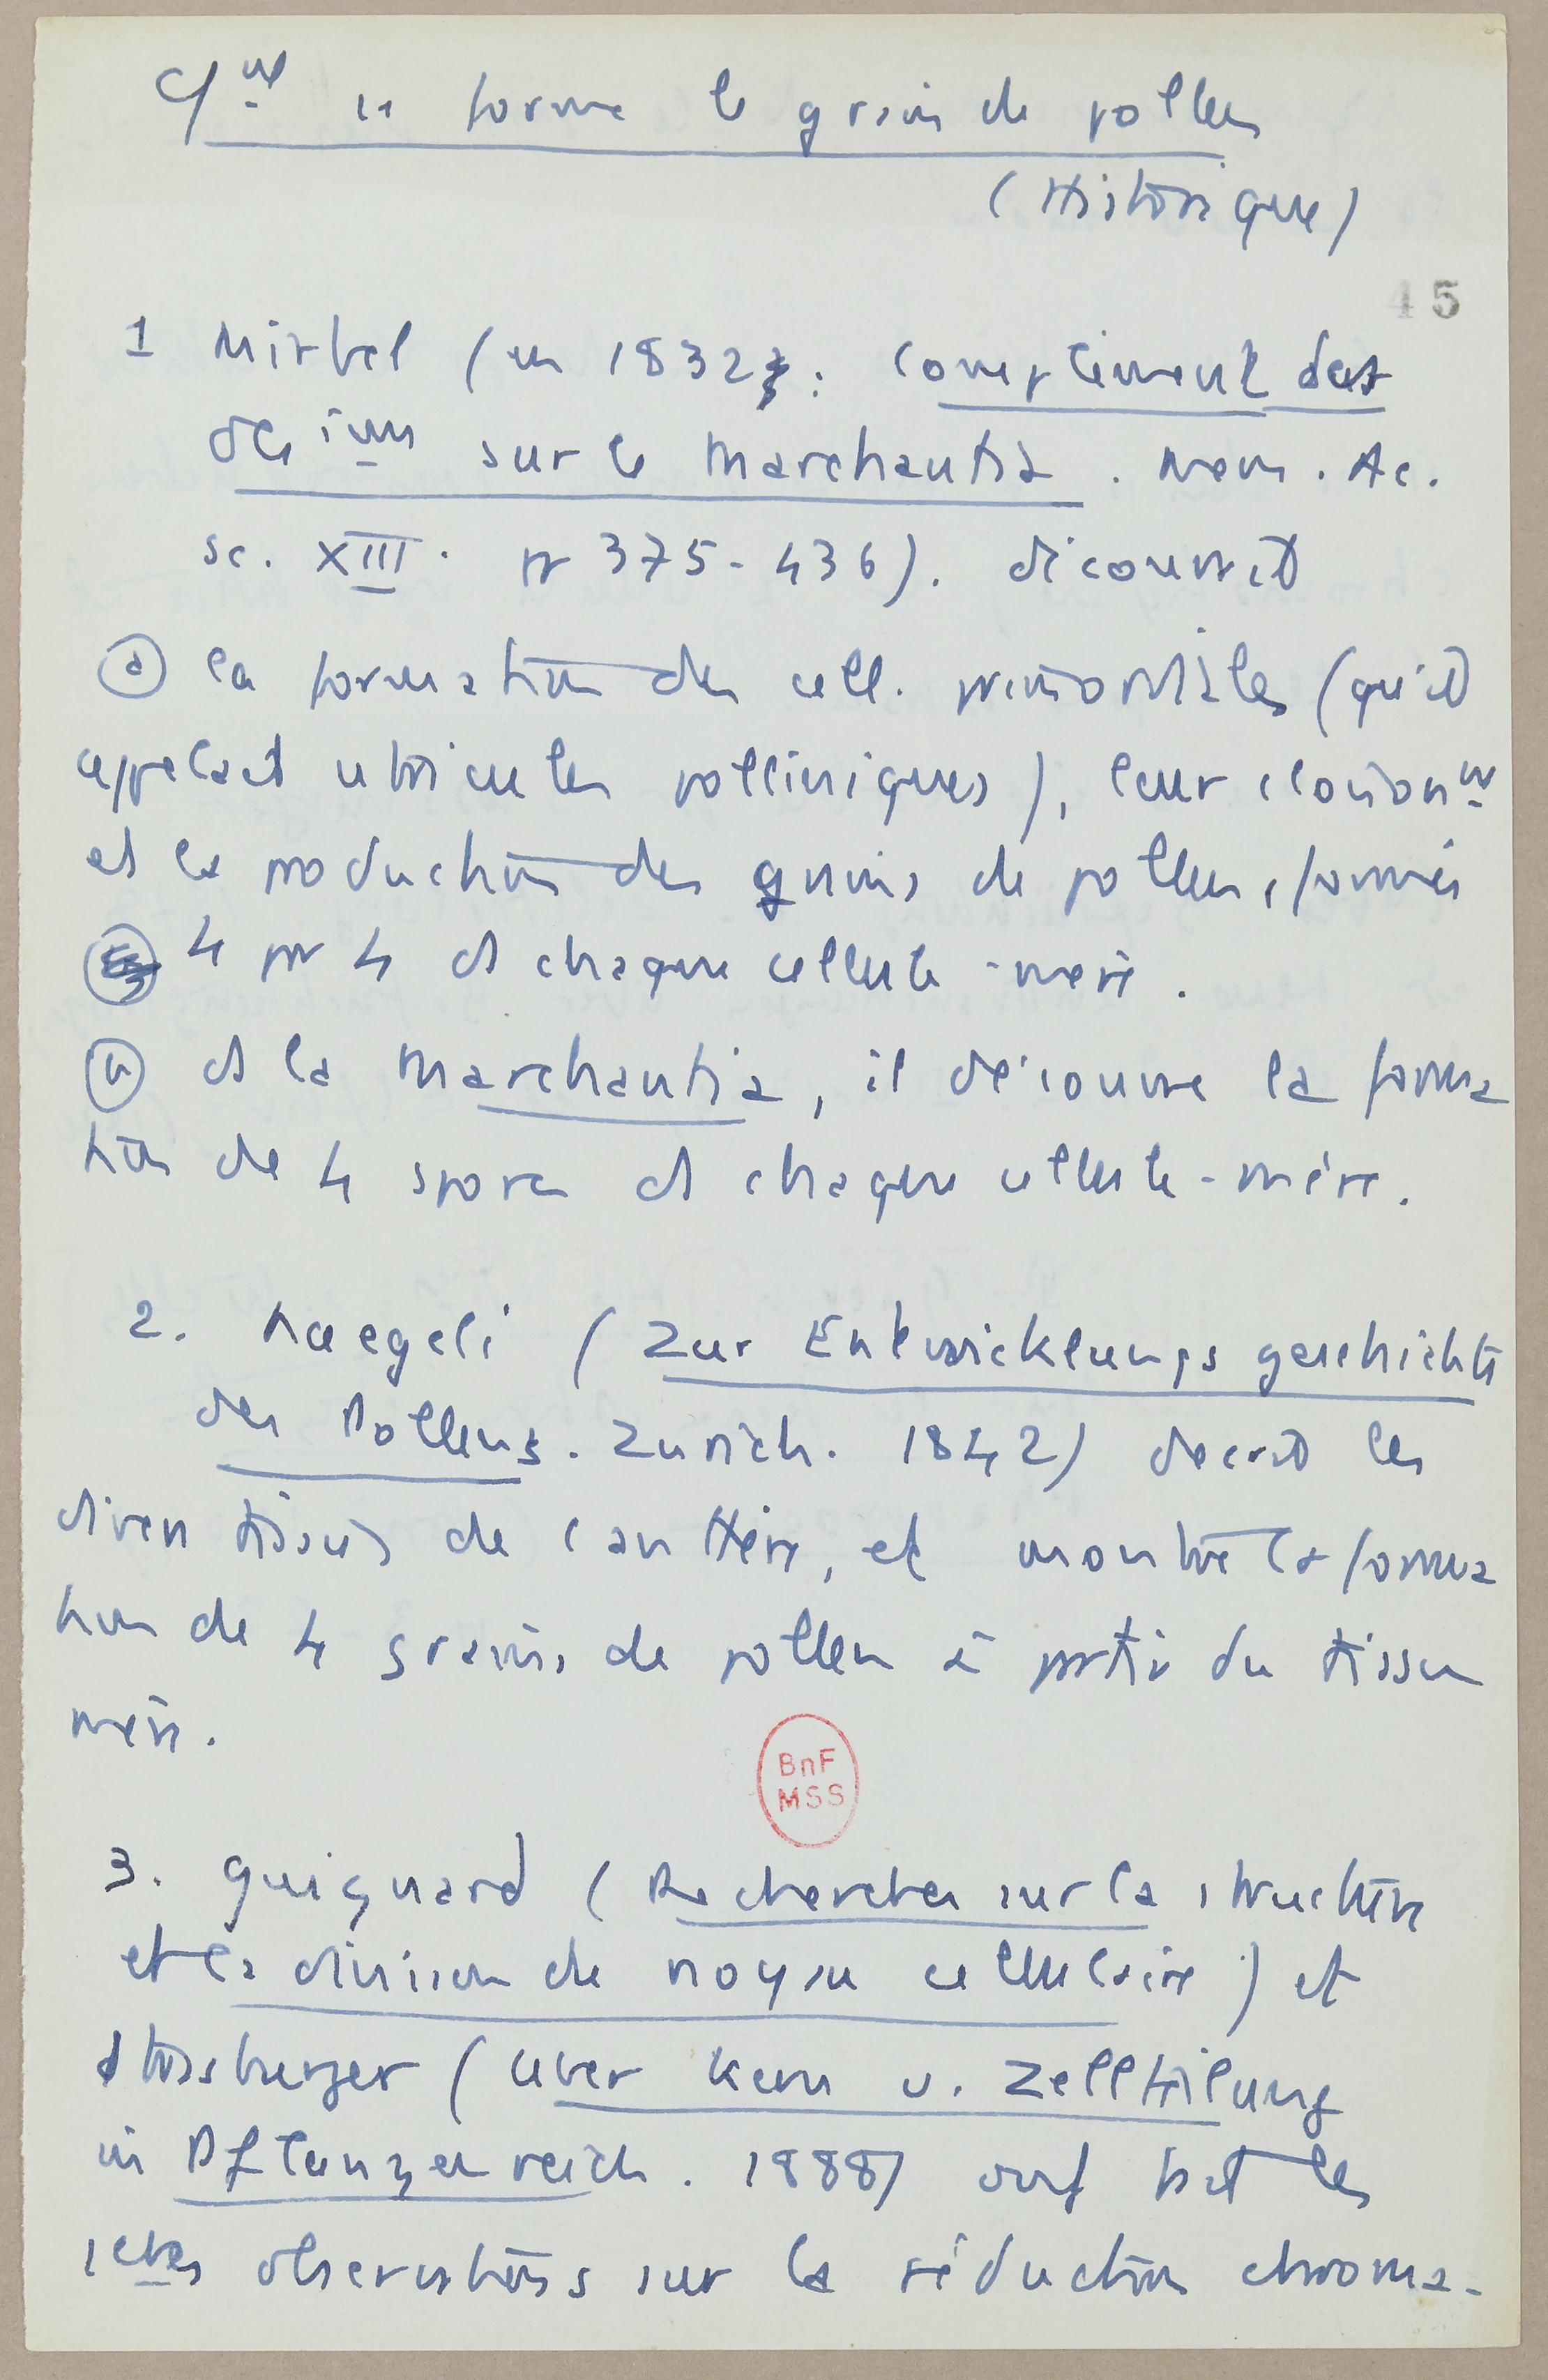 C/nt se forme le grain de pollen
(Historique)
45
1 Mirbel (en 1832 : Complément des
des obs sur le Marchantia. Mem. Ac.
Sc. XIII. pp 375-436). découvrit
(a) la formation des cell. primordiales (qu'il
appelait utricules polliniques), leur cloisonnt
et la production des grains de pollen, formés
4 par 4 ds chaque cellule-mère.
(b) ds la Marchantia, il découvre la forma
tion de 4 spores ds chaque cellule-mère.
2. Naegeli (Zur Entwicklungsgeschichte
des Pollens. Zurich. 1842) décrit les
divers tissus de l'anthère, et montre la forma
tion de 4 grains de pollen à partir du tissu
mère.
BnF
MSS
3. Guignard (Recherches sur la structure
et la division du noyau cellulaire) et
Strasburger (Uber Kern u. Zellteilung
in Pflanzenreich. 1888) ont fait les
1ères observations sur la réduction chroma-